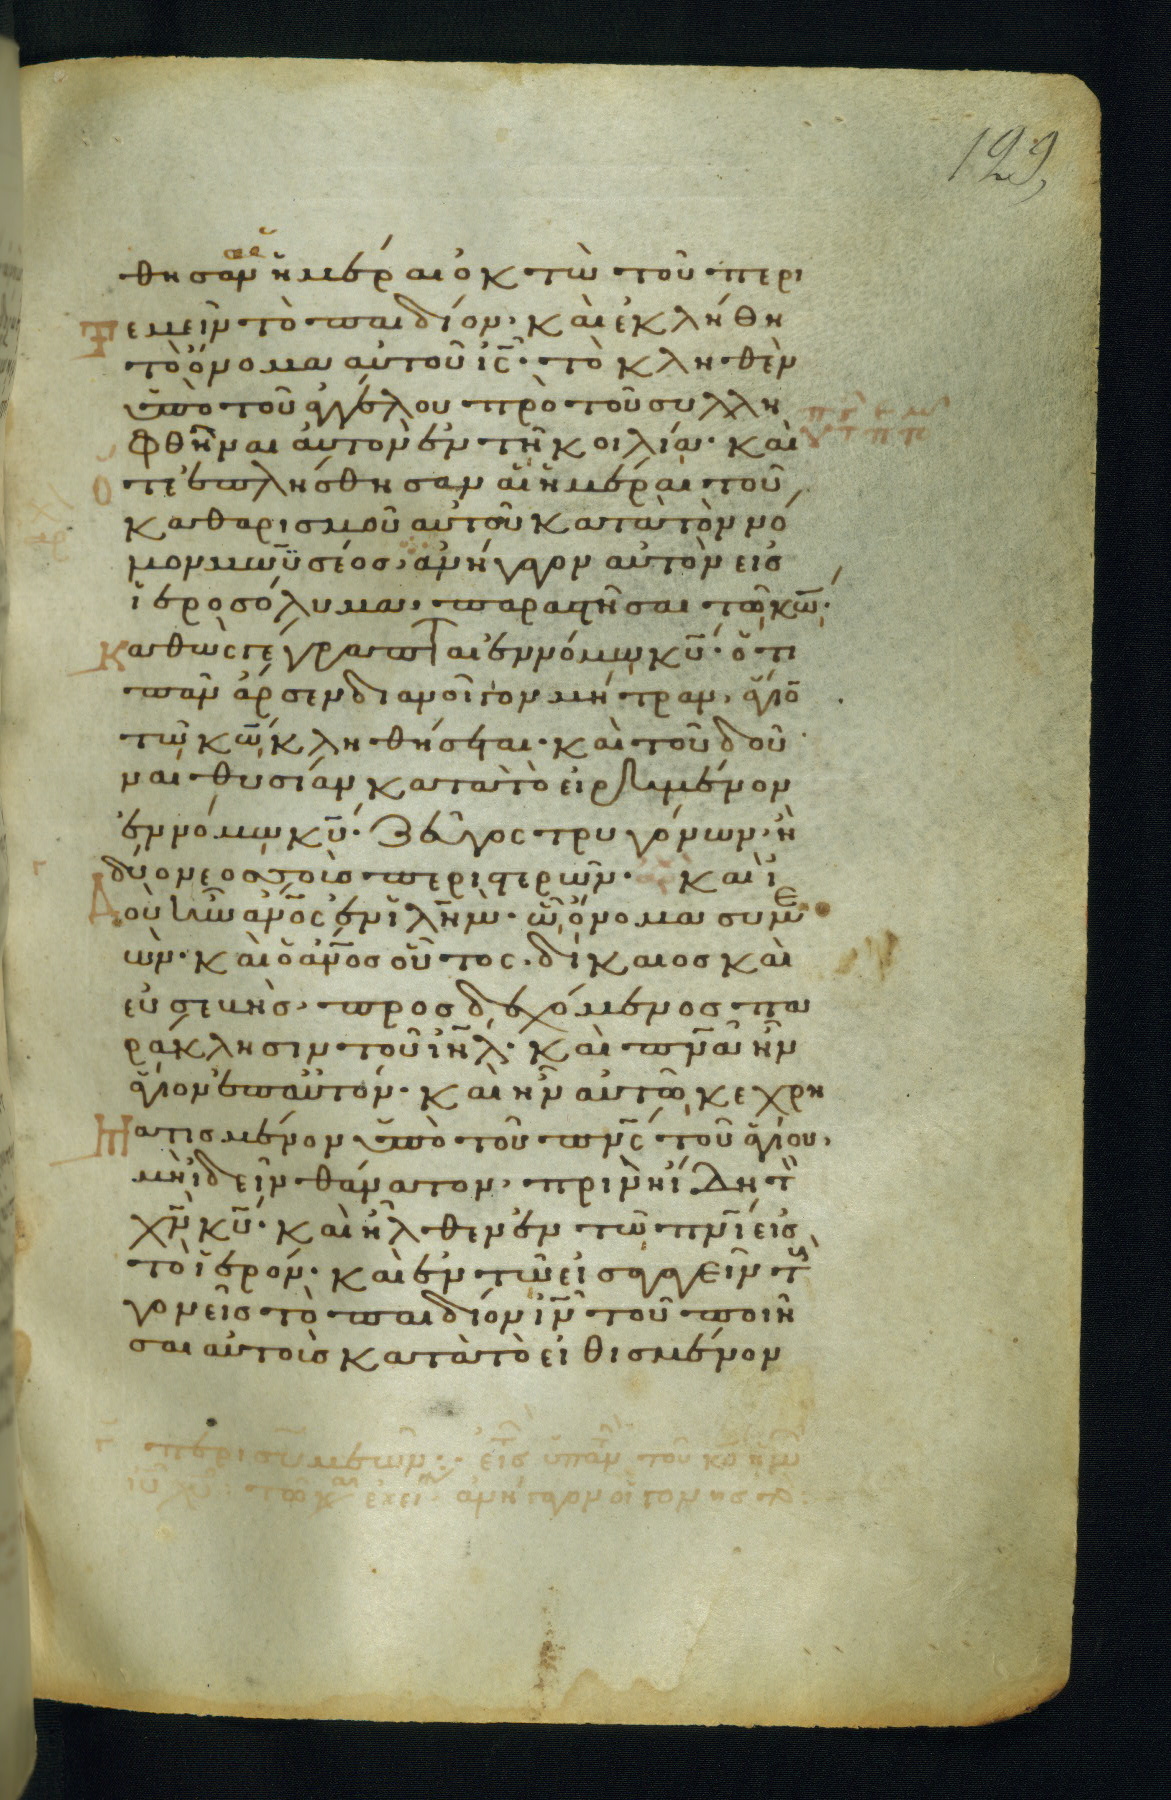 129,
θησαν ἡμέραι ὀκτὼ τοῦ περι
τεμεῖν τὸ παιδίον· καὶ ἐκλήθη
τὸ ὄνομα αὐτοῦ ις̅· τὸ κληθὲν
ὑπὸ τοῦ ἀγγέλου πρὸ τοῦ συλλη
φθῆναι αὐτὸν ἐν τῆ κοιλία· καὶ
ὅτε ἐπλήσθησαν αἱ ἡμέραι τοῦ
καθαρισμοῦ αὐτοῦ κατὰ τὸν νό
μον μωϋσέος· ἀνήγαγον αὐτὸν εἰς
ἱεροσόλυμα· παραστῆσαι τῶ κω̅·
καθὼς γέγραπται ἐν νόμω κυ̅· ὅτι
πᾶν ἄρσεν διανοῖγον μήτραν· ἅγιο̅
τῶ κω̅ κληθήσεται· καὶ τοῦ δοῦ
ναι θυσίαν κατὰ τὸ εἰρημένον
ἐν νόμω κυ̅· ζεῦγος τρυγόνων· ἢ
δύο νεοσσοὺς περιστερῶν· καὶ ἰ
δοὺ ἦν ἀνο̅ς ἐν ἰλη̅μ· ὧ ὄνομα συμε
ὼν· καὶ ὁ ἀνο̅ς οὗτος· δίκαιος καὶ
εὐσεβὴς· προσδεχόμενος πα
ράκλησιν τοῦ ιη̅λ· καὶ πνα̅ ἦν
ἅγιον ἐπ αὐτόν· καὶ ἦν αὐτῶ κεχρη
ματισμένον ὑπὸ τοῦ πνς̅ τοῦ ἁγίου·
μὴ ἰδεῖν θάνατον· πρὶν ἢ ἴδη τὸ
χν̅ κυ̅· καὶ ἦλθεν ἐν τῶ πνι̅ εἰς
τὸ ἱερόν· καὶ ἐν τῶ εἰσαγαγεῖν τοὺς
γονεῖς τὸ παιδίον ιν̅ τοῦ ποιῆ
σαι αὐτοὺς κατὰ τὸ εἰθισμένον
περι συμεών